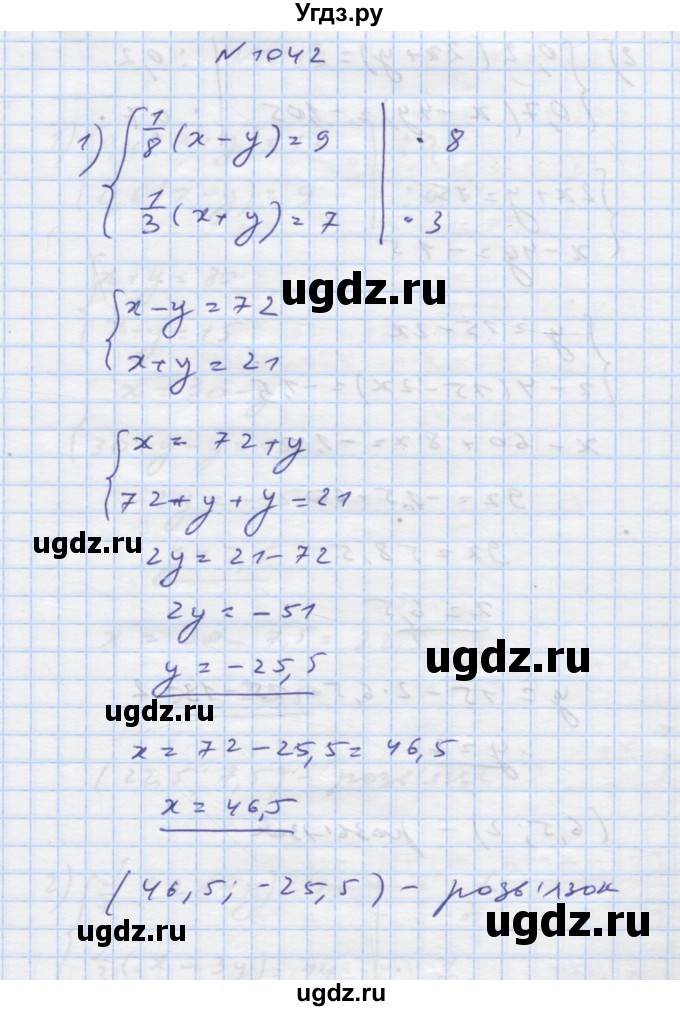 Угдз.ру
N 1042
1) { 1/8 (x − y) = 9 | · 8
1/3 (x + y) = 7 | · 3
ugdz.ru
{ x − y = 72
x + y = 21
{ x = 72 + y
72 + y + y = 21
ugdz.ru
2y = 21 − 72
2y = −51
ugdz.ru
y = −25,5
ugdz.ru
x = 72 − 25,5 = 46,5
x = 46,5
ugdz.ru
(46,5; −25,5) − розв'язок
ugdz.ru
ugdz.ru
ugdz.ru